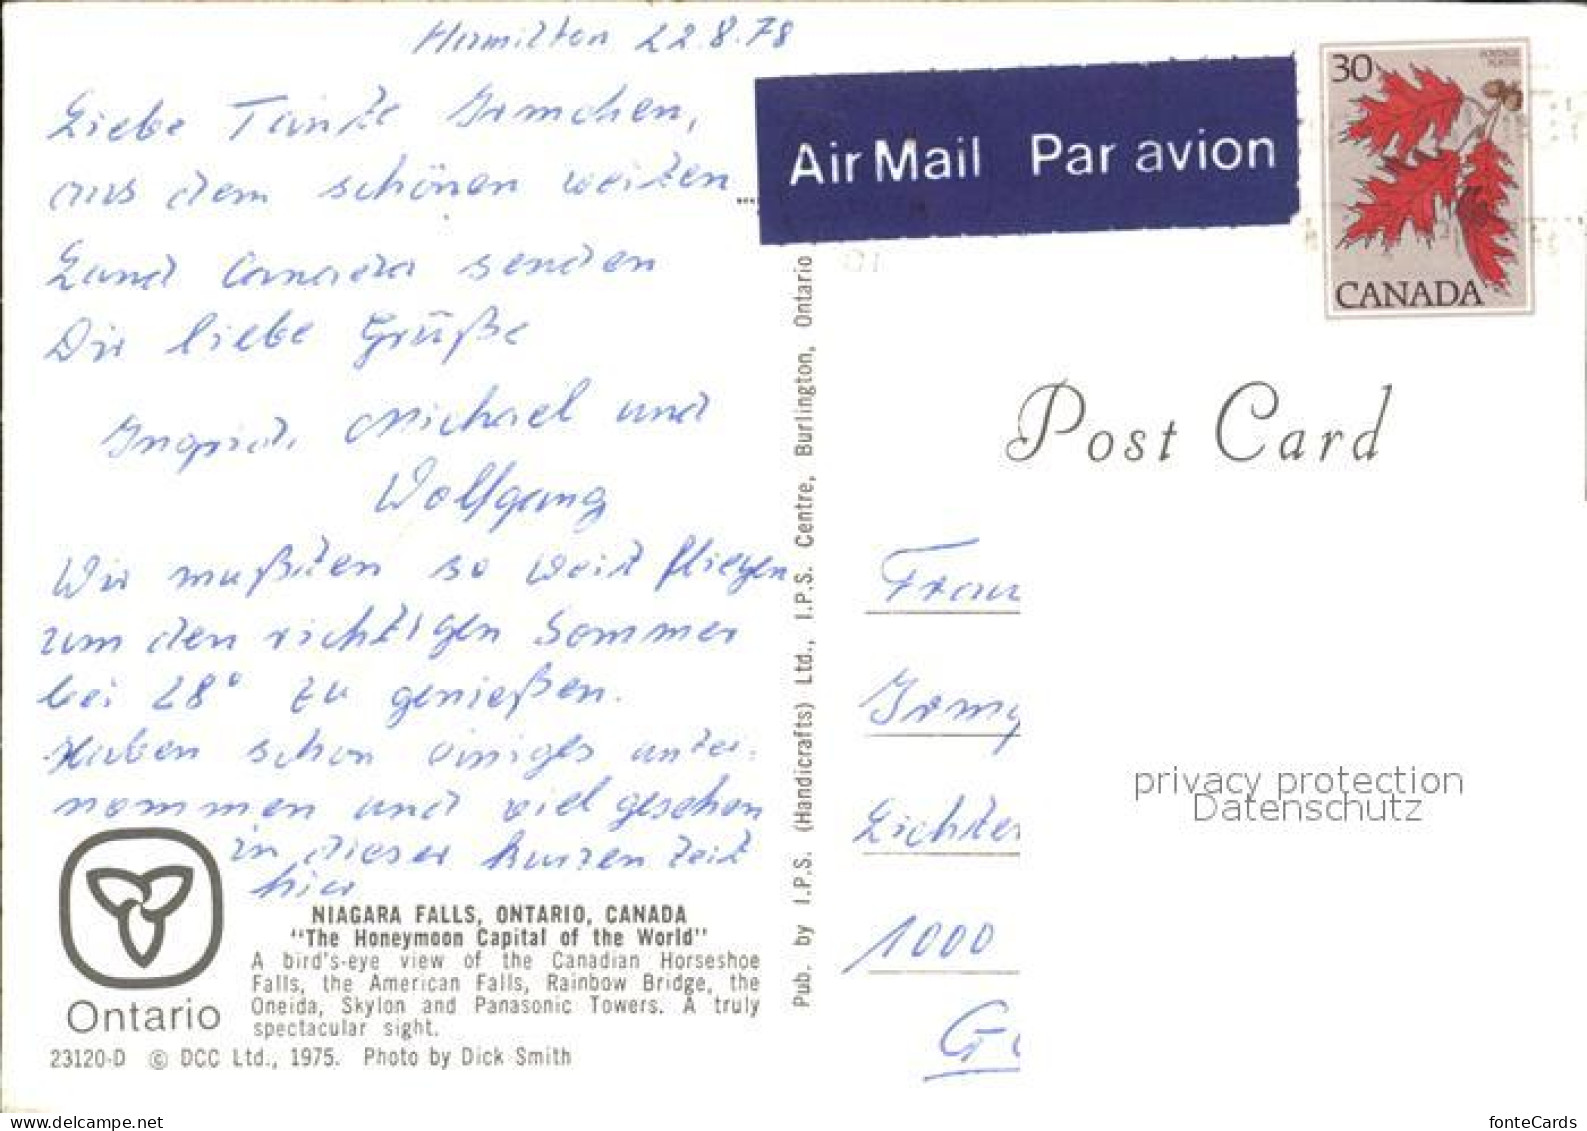 Hamilton 22.8.78
Liebe Tante Irmchen,
aus dem schönen weiten
Land Canada senden
Dir liebe Grüße
Ingrid, Michael und
Wolfgang
Wir mußten so weit fliegen
um den richtigen Sommer
bei 28° zu genießen.
Haben schon einiges unter-
nommen und viel gesehen
in dieser kurzen Zeit
hier
NIAGARA FALLS, ONTARIO, CANADA
"The Honeymoon Capital of the World"
A bird's-eye view of the Canadian Horseshoe
Falls, the American Falls, Rainbow Bridge, the
Oneida, Skylon and Panasonic Towers. A truly
spectacular sight.
Ontario
23120-D © DCC Ltd., 1975. Photo by Dick Smith
Pub. by I.P.S. (Handicrafts) Ltd., I.P.S. Centre, Burlington, Ontario
Air Mail Par avion
30
POSTAGE
POSTES
CANADA
Post Card
Frau
Irmg
Lichter
1000
privacy protection
Datenschutz
www.delcampe.net
fonteCards